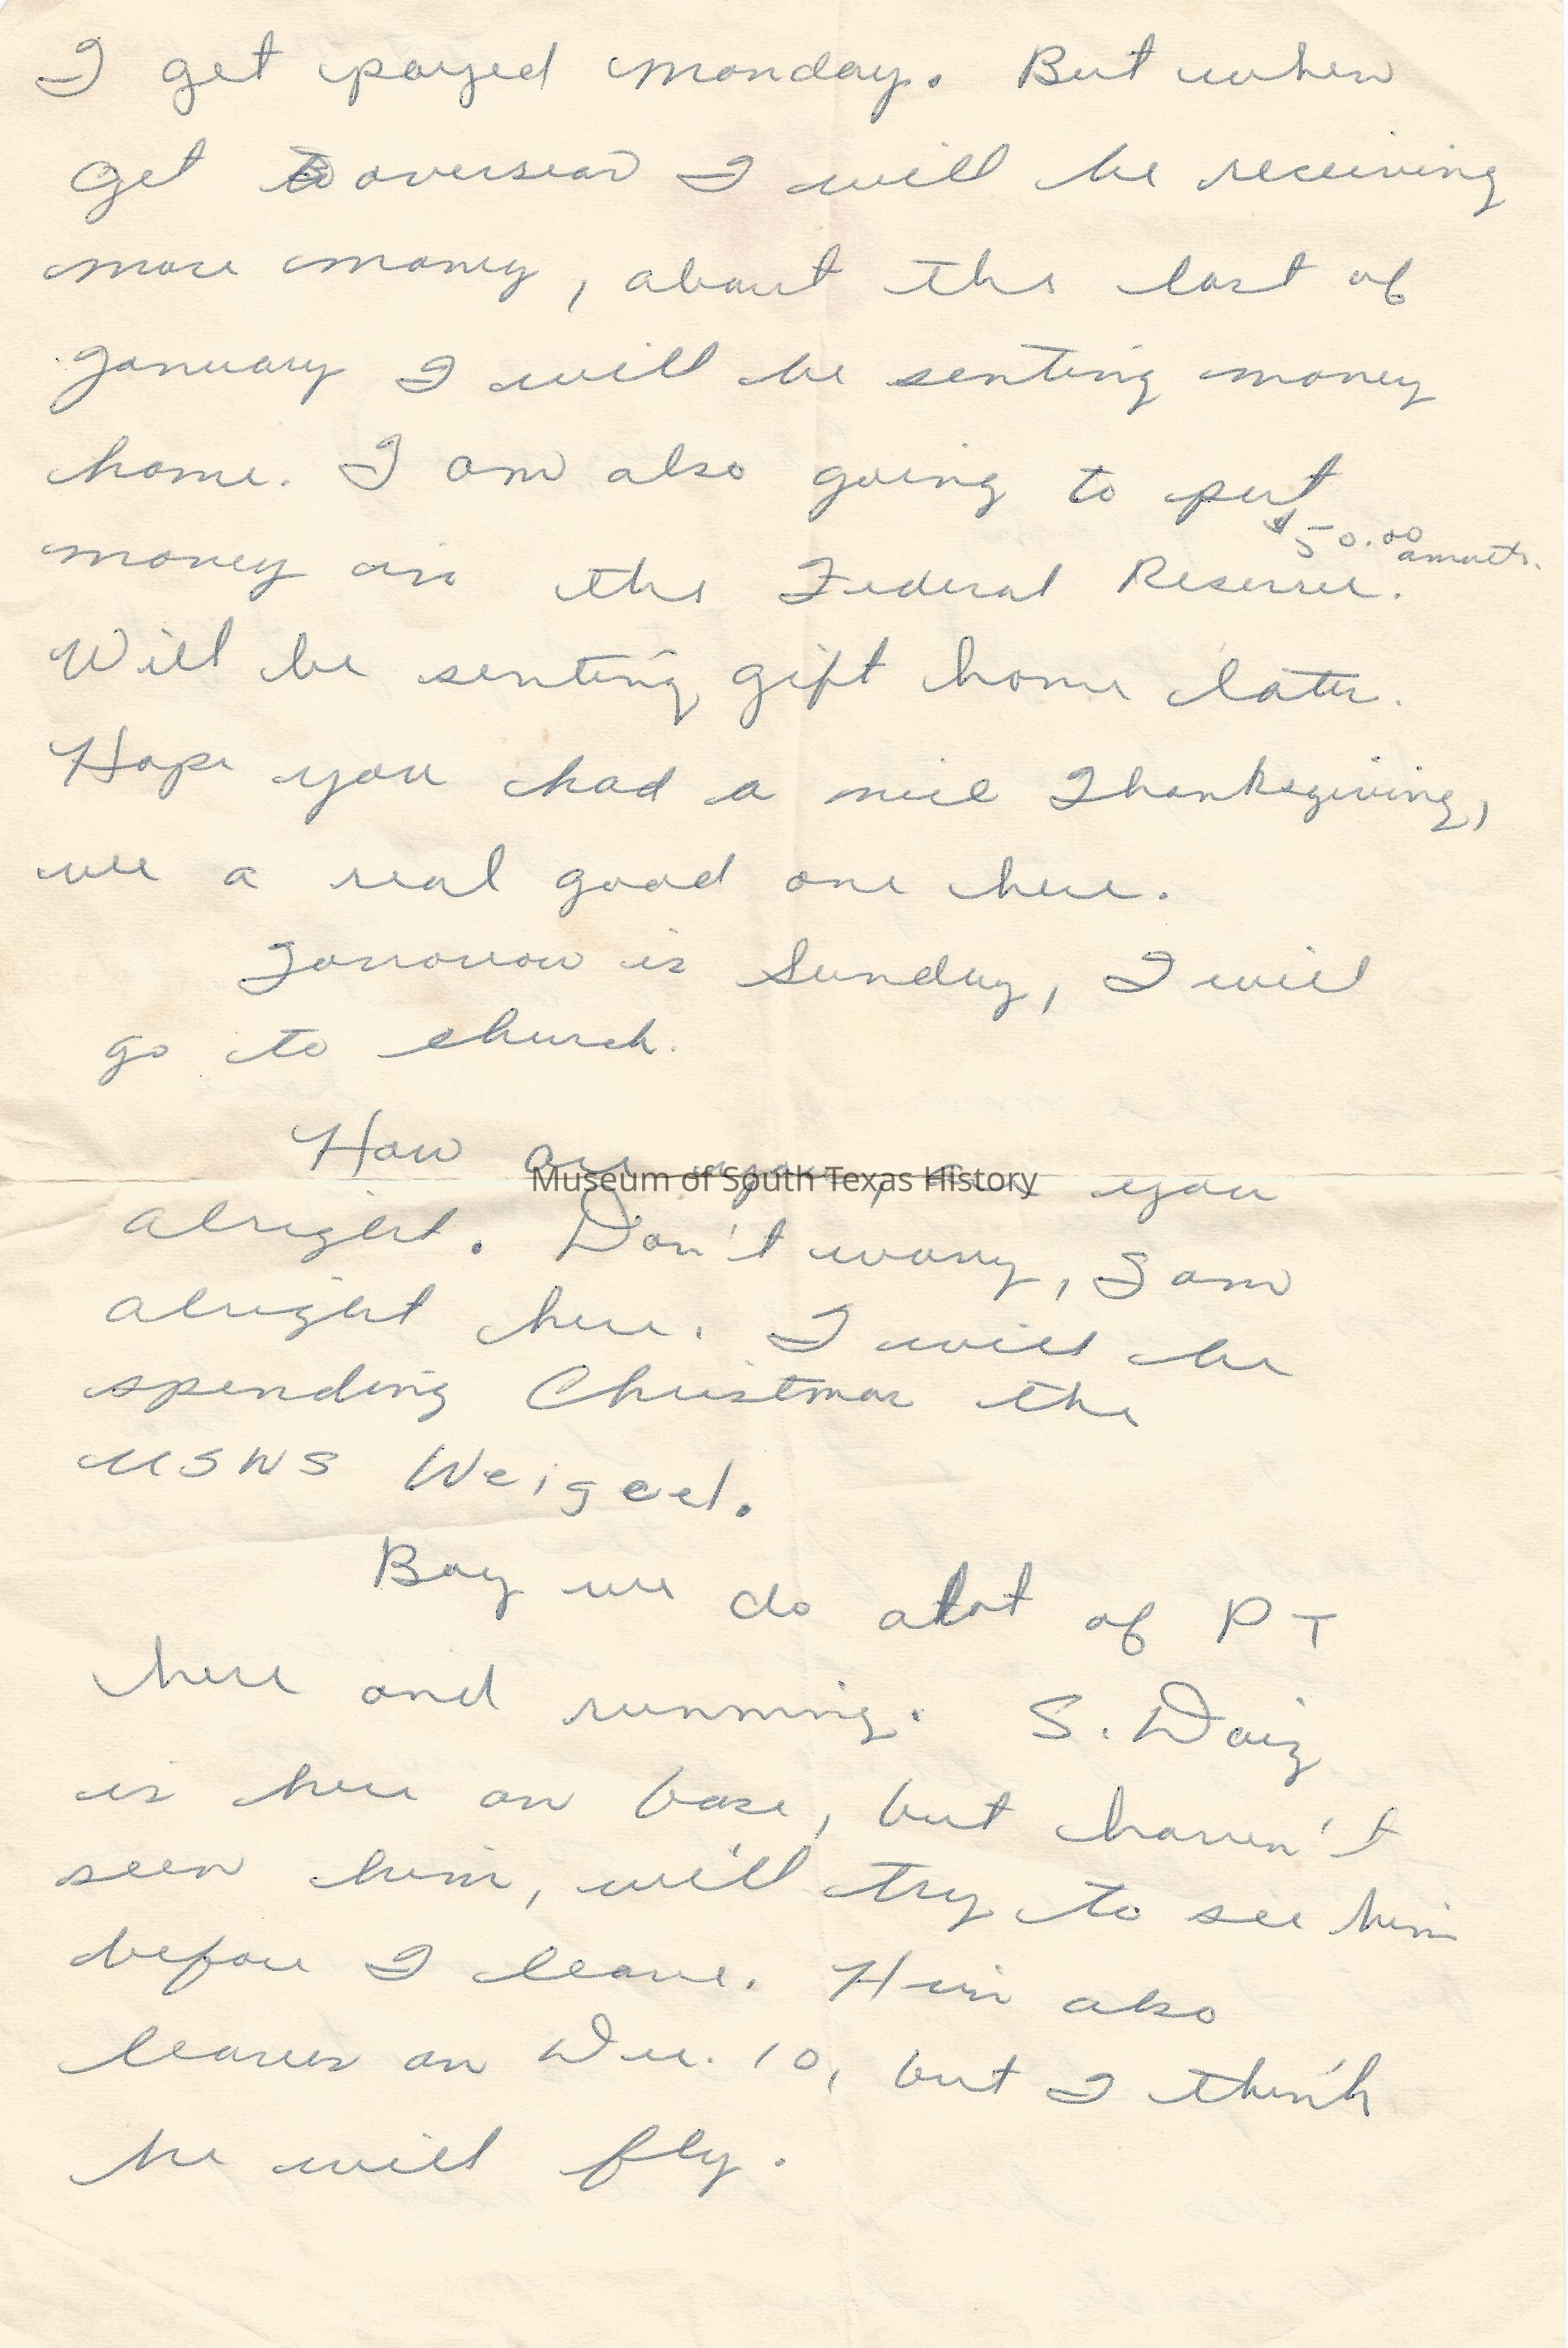 I get payed monday. But when
get to overseas I will be receiving
more money, about the last of
January I will be senting money
home. I am also going to put
$50.00 amouts.
money in the Federal Reserve.
Will be senting gift home later.
Hope you had a nice Thanksgiving,
we a real good one here.
Tomorrow is Sunday, I will
go to church.
How are you, you
Museum of South Texas History
alright. Don't worry, I am
alright here. I will be
spending Christmas the
USNS Weigeel.
Boy we do alot of PT
here and running. S. Daiz
is here on base, but haven't
seen him, will try to see him
before I leave. Him also
leaves on Dec. 10, but I think
he will fly.